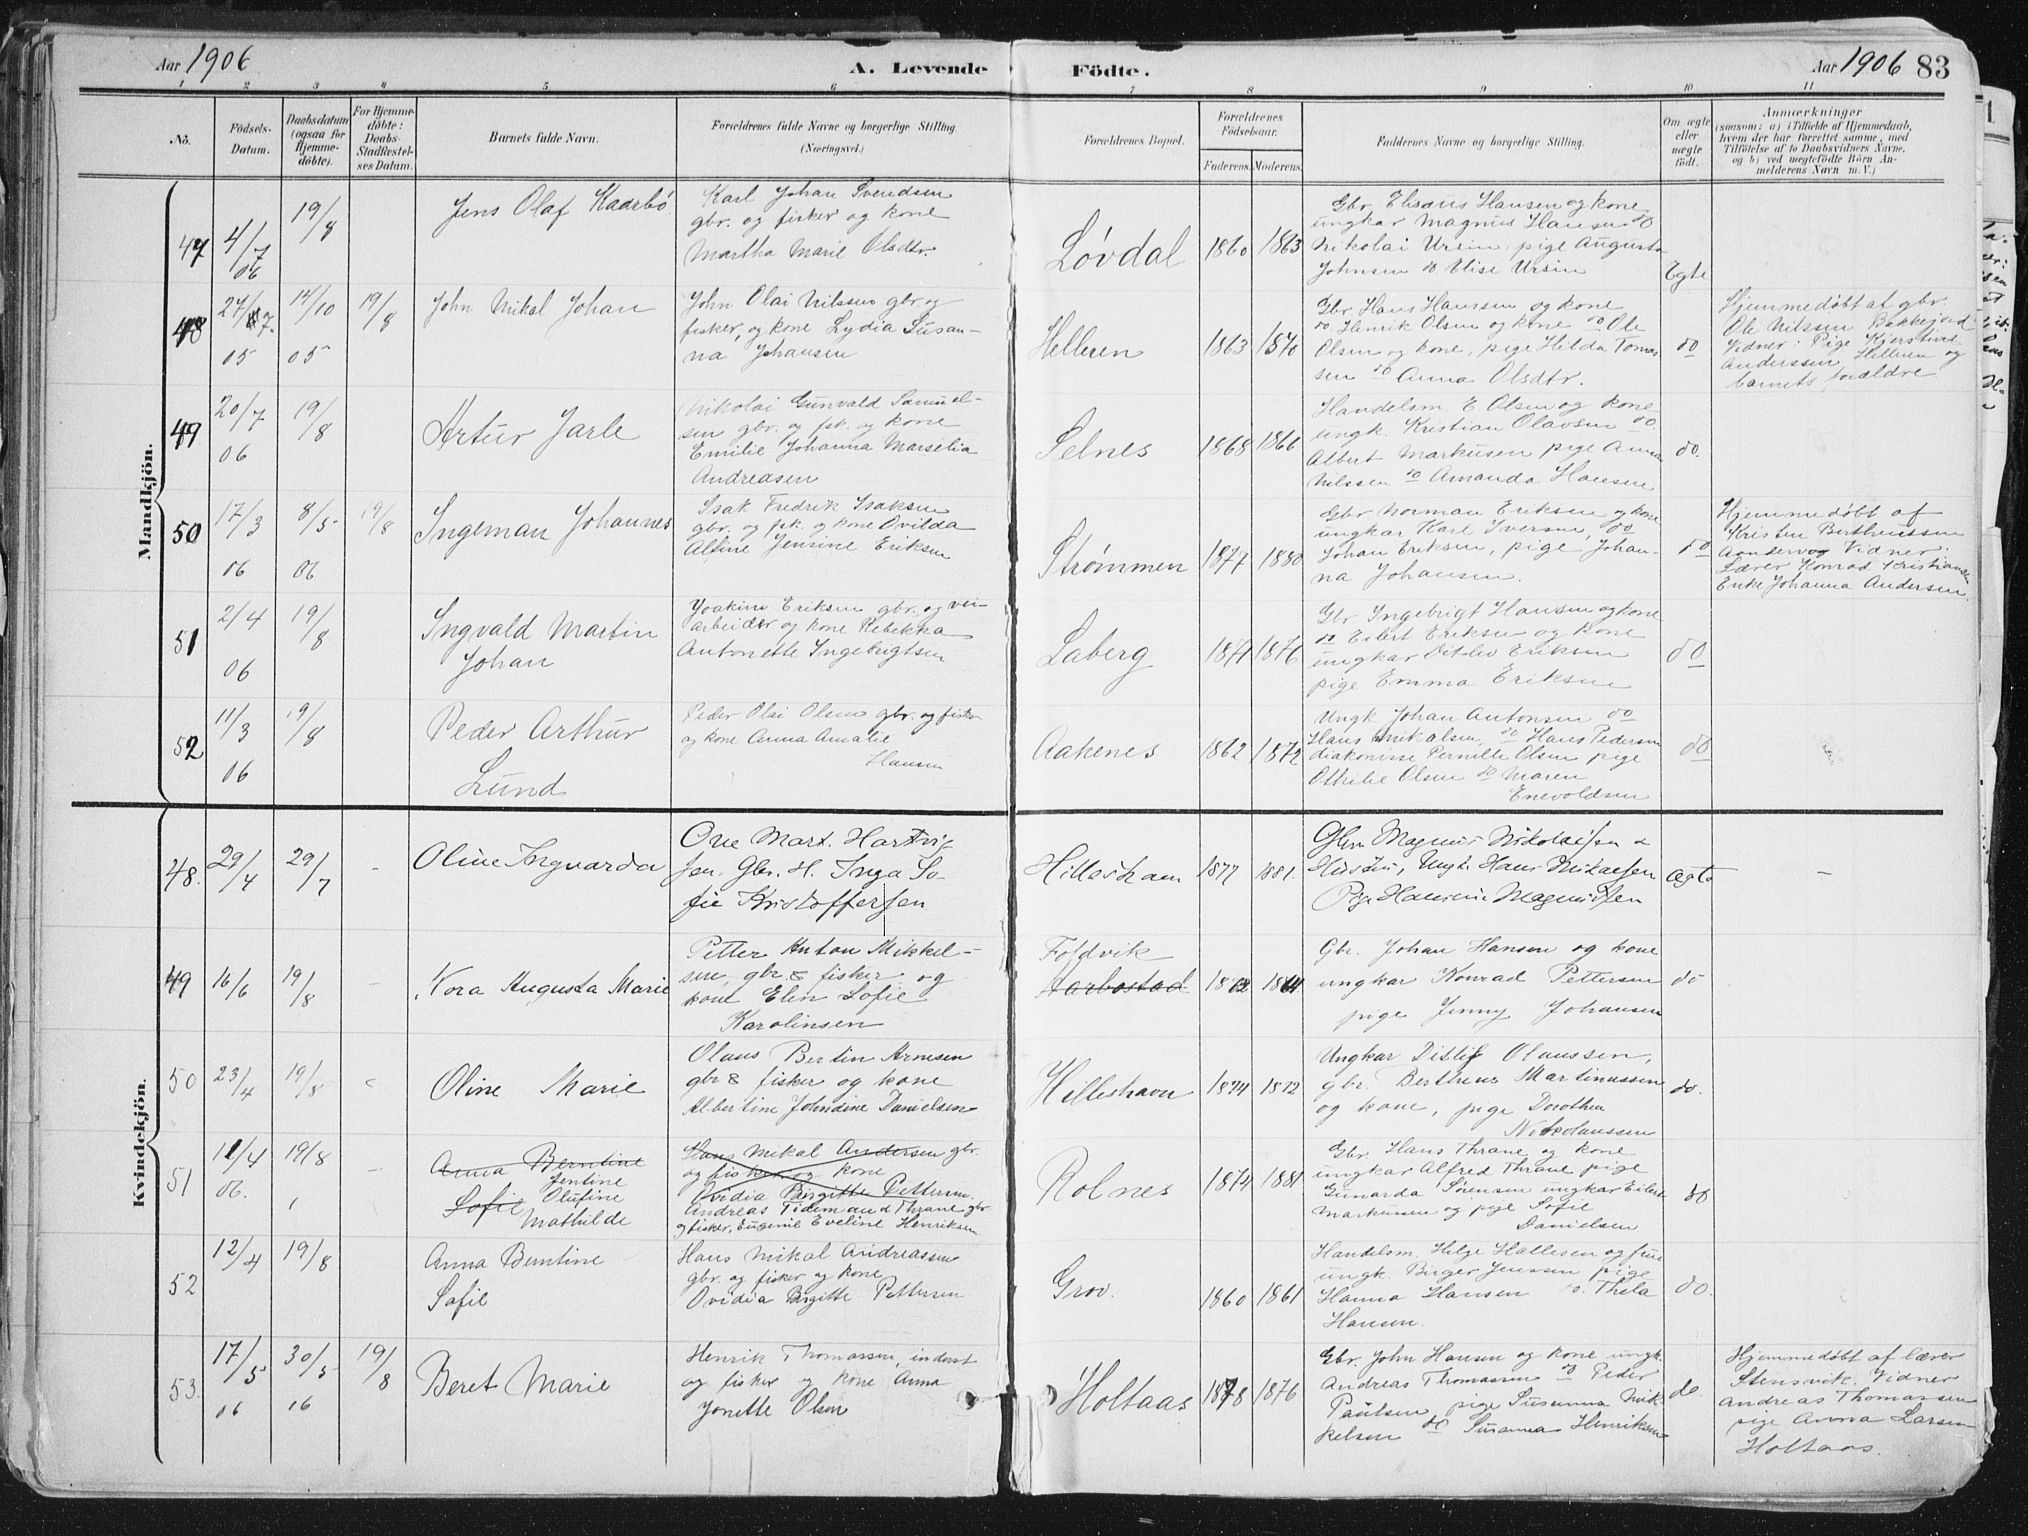 Aar 1906
A. Levende
Födte.
Aar 1906 83
1 2 3 4 5 6 7 8 9 10 11
No.
Födsels-
Datum.
Daabsdatum
(ogsaa for
Hjemme-
döbte).
For Hjemme-
döbte:
Daabs-
Stadfæstel-
ses Datum.
Barnets fulde Navn.
Forældrenes fulde Navne og borgerlige Stilling
(Næringsvei.)
Forældrenes Bopæl.
Forældrenes
Födselsaar.
Faderens. Moderens.
Faddernes Navne og borgerlige Stilling.
Om ægte
eller
uægte
födt.
Anmærkninger
(saasom: a) i Tilfælde af Hjemmedaab,
hvem der har forrettet samme, med
Tilföielse af to Daabsvidners Navne,
og b) ved uegtefödte Börn An-
melderens Navn m. V.)
Mandkjön.
47
4/7
06
19/8
Jens Olaf Kaarbö
Karl Johan Svendsen
gbr. og fisker og kone
Martha Marie Olsdtr.
Løvdal
1860 1863
Gbr. Elisæus Hansen og kone
ungkar Magnus Hansen do
Nikolai Ursin, pige Augusta
Johnsen do Elise Ursin
Egte
48
27/7
05
14/10
05
19/8
John Nikal Johan
John Olai Nilssen gbr og
fisker, og kone Lydia Susan-
na Johansen
Helleren
1863 1870
Gbr Hans Hansen og kone
do Henrik Olsen og kone do Ole
Olsen og kone, pige Hilda Tomas
sen do Anna Olsdtr.
do
Hjemmedøbt af gbr
Ole Nilssen Bakkejord
Vidner: Pige Kjerstine
Anderssen Helleren og
barnets forældre
49
20/7
06
19/8
Artur Jarle
Nikolai Gunvald Samuel-
sen gbr. og fsk. og kone
Emilie Johanna Marselia
Andreasen
Selnes
1868 1866
Handelsm. E Olsen og kone
ungk. Kristian Olavsen do.
Albert Markusen pige Anna
Nilssen do Amanda Hansen
do.
50
17/3
06
8/5
06
19/8
Ingeman Johannes
Isak Fredrik Isaksen
gbr. og fsk. og kone Ovilda
Alfine Jensine Eriksen
Strømmen
1877 1880
Gbr Norman Eriksen og kone
ungkar Karl Iversen, do
Johan Eriksen, pige Johan-
na Johansen.
do
Hjemmedøbt af
Kristen Bertheussen
Vidner:
Lærer Konrad Kristiansen
Enke Johanna Andersen.
51
2/4
06
19/8
Ingvald Martin
Johan
Joakim Eriksen gbr. og vei-
arbeider og kone Rebekka
Antonette Ingebrigtsen
Laberg
1871 1876
Gbr Ingebrigt Hansen og kone
do Eilert Eriksen og kone
ungkar Ditlev Eriksen
pige Emma Eriksen
do
52
11/3
06
19/8
Peder Arthur
Lund
Peder Olai Olsen gbr. og fisker
og kone Anna Amalie
Hansen
Aakenes
1862 1872
Ungk Johan Antonsen do
Hans Mikalsen, do Hans Pedersen
diakonisse Pernille Olsen pige
Othelie Olsen do Maren
Enevoldsen
do
Kvindekjön.
48.
29/4
29/7
-
Oline Ingvarda
Ove Mart. Hartvig
sen, Gbr. H. Inga So
fie Kristoffersen
Hilleshavn
1877 1881.
Gbr. Magnus Nikolaisen &
Hustru, Ungk Hans Mikalsen
Pige Hansine Magnussen
ægte
-
49
16/6
19/8
-
Nora Augusta Marie
Petter Anton Mikkel-
sen, gbr & fisker og
kone Elen Sofie
Karolinsen
Foldvik
Aarbostad
Gbr. Johan Hansen og kone
ungkar Konrad Pettersen
pige Jenny Johansen
do
50
23/4
19/8
Oline Marie
Olaus Bertin Arnesen
gbr & fisker og kone
Albertine Johndine Danielsen
Hilleshavn
1874 1872
Ungkar Ditlef Olaussen,
gbr. Bertheus Martinussen
og kone, pige Dorothea
Nikolaussen
do.
51
11/4
06.
19/8
-
Anna Berntine
Jentine
Sofie Olutine
Mathilde
Hans Mikal Andersen gbr.
og fisker og kone
Ovidia Birgitte Pettersen.
Andreas Tidemand Thrane gbr
og fisker, Eugenie Eveline Henriksen
Rolnes
1874 1881
Gbr. Hans Thrane og kone
ungkar Alfred Thrane pige
Gunarda Sørensen ungkar Eilert
Markussen og pige Sofie
Danielsen
do
52
12/4
19/8
Anna Berntine
Sofie
Hans Mikal Andreassen
gbr. og fisker og kone
Ovidia Birgitte Pettersen
Grov.
1860 1861
Handelsm. Helge Hallesen og frue
ungk. Birger Jenssen pige
Hanna Hansen do. Thela
Hansen.
do.
53.
17/5
06
30/5
06
19/8
Beret Marie
Henrik Thomassen, inderst
og fisker og kone Anna
Jonette Olsen
Holtaas
1878 1876
Gbr. John Hansen og kone ungk.
Andreas Thomassen do Peder
Paulsen, pige Susanna Mik
kelsen do Susanna Henriksen
do.
Hjemmedøbt af lærer
Stensvik. Vidner
Andreas Thomassen
pige Anna Larsen
Holtaas.